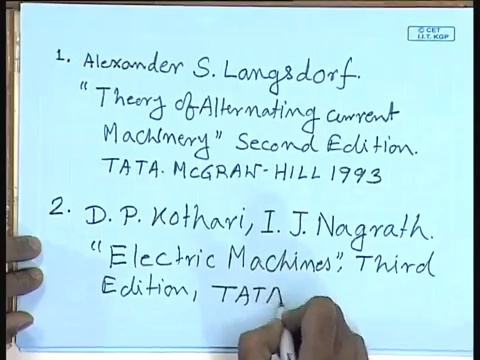 © CET
I.I.T. KGP
1. Alexander S. Langsdorf.
"Theory of Alternating current
Machinery" Second Edition.
TATA. McGRAW-HILL 1993
2. D. P. Kothari, I. J. Nagrath.
"Electric Machines", Third
Edition, TATA